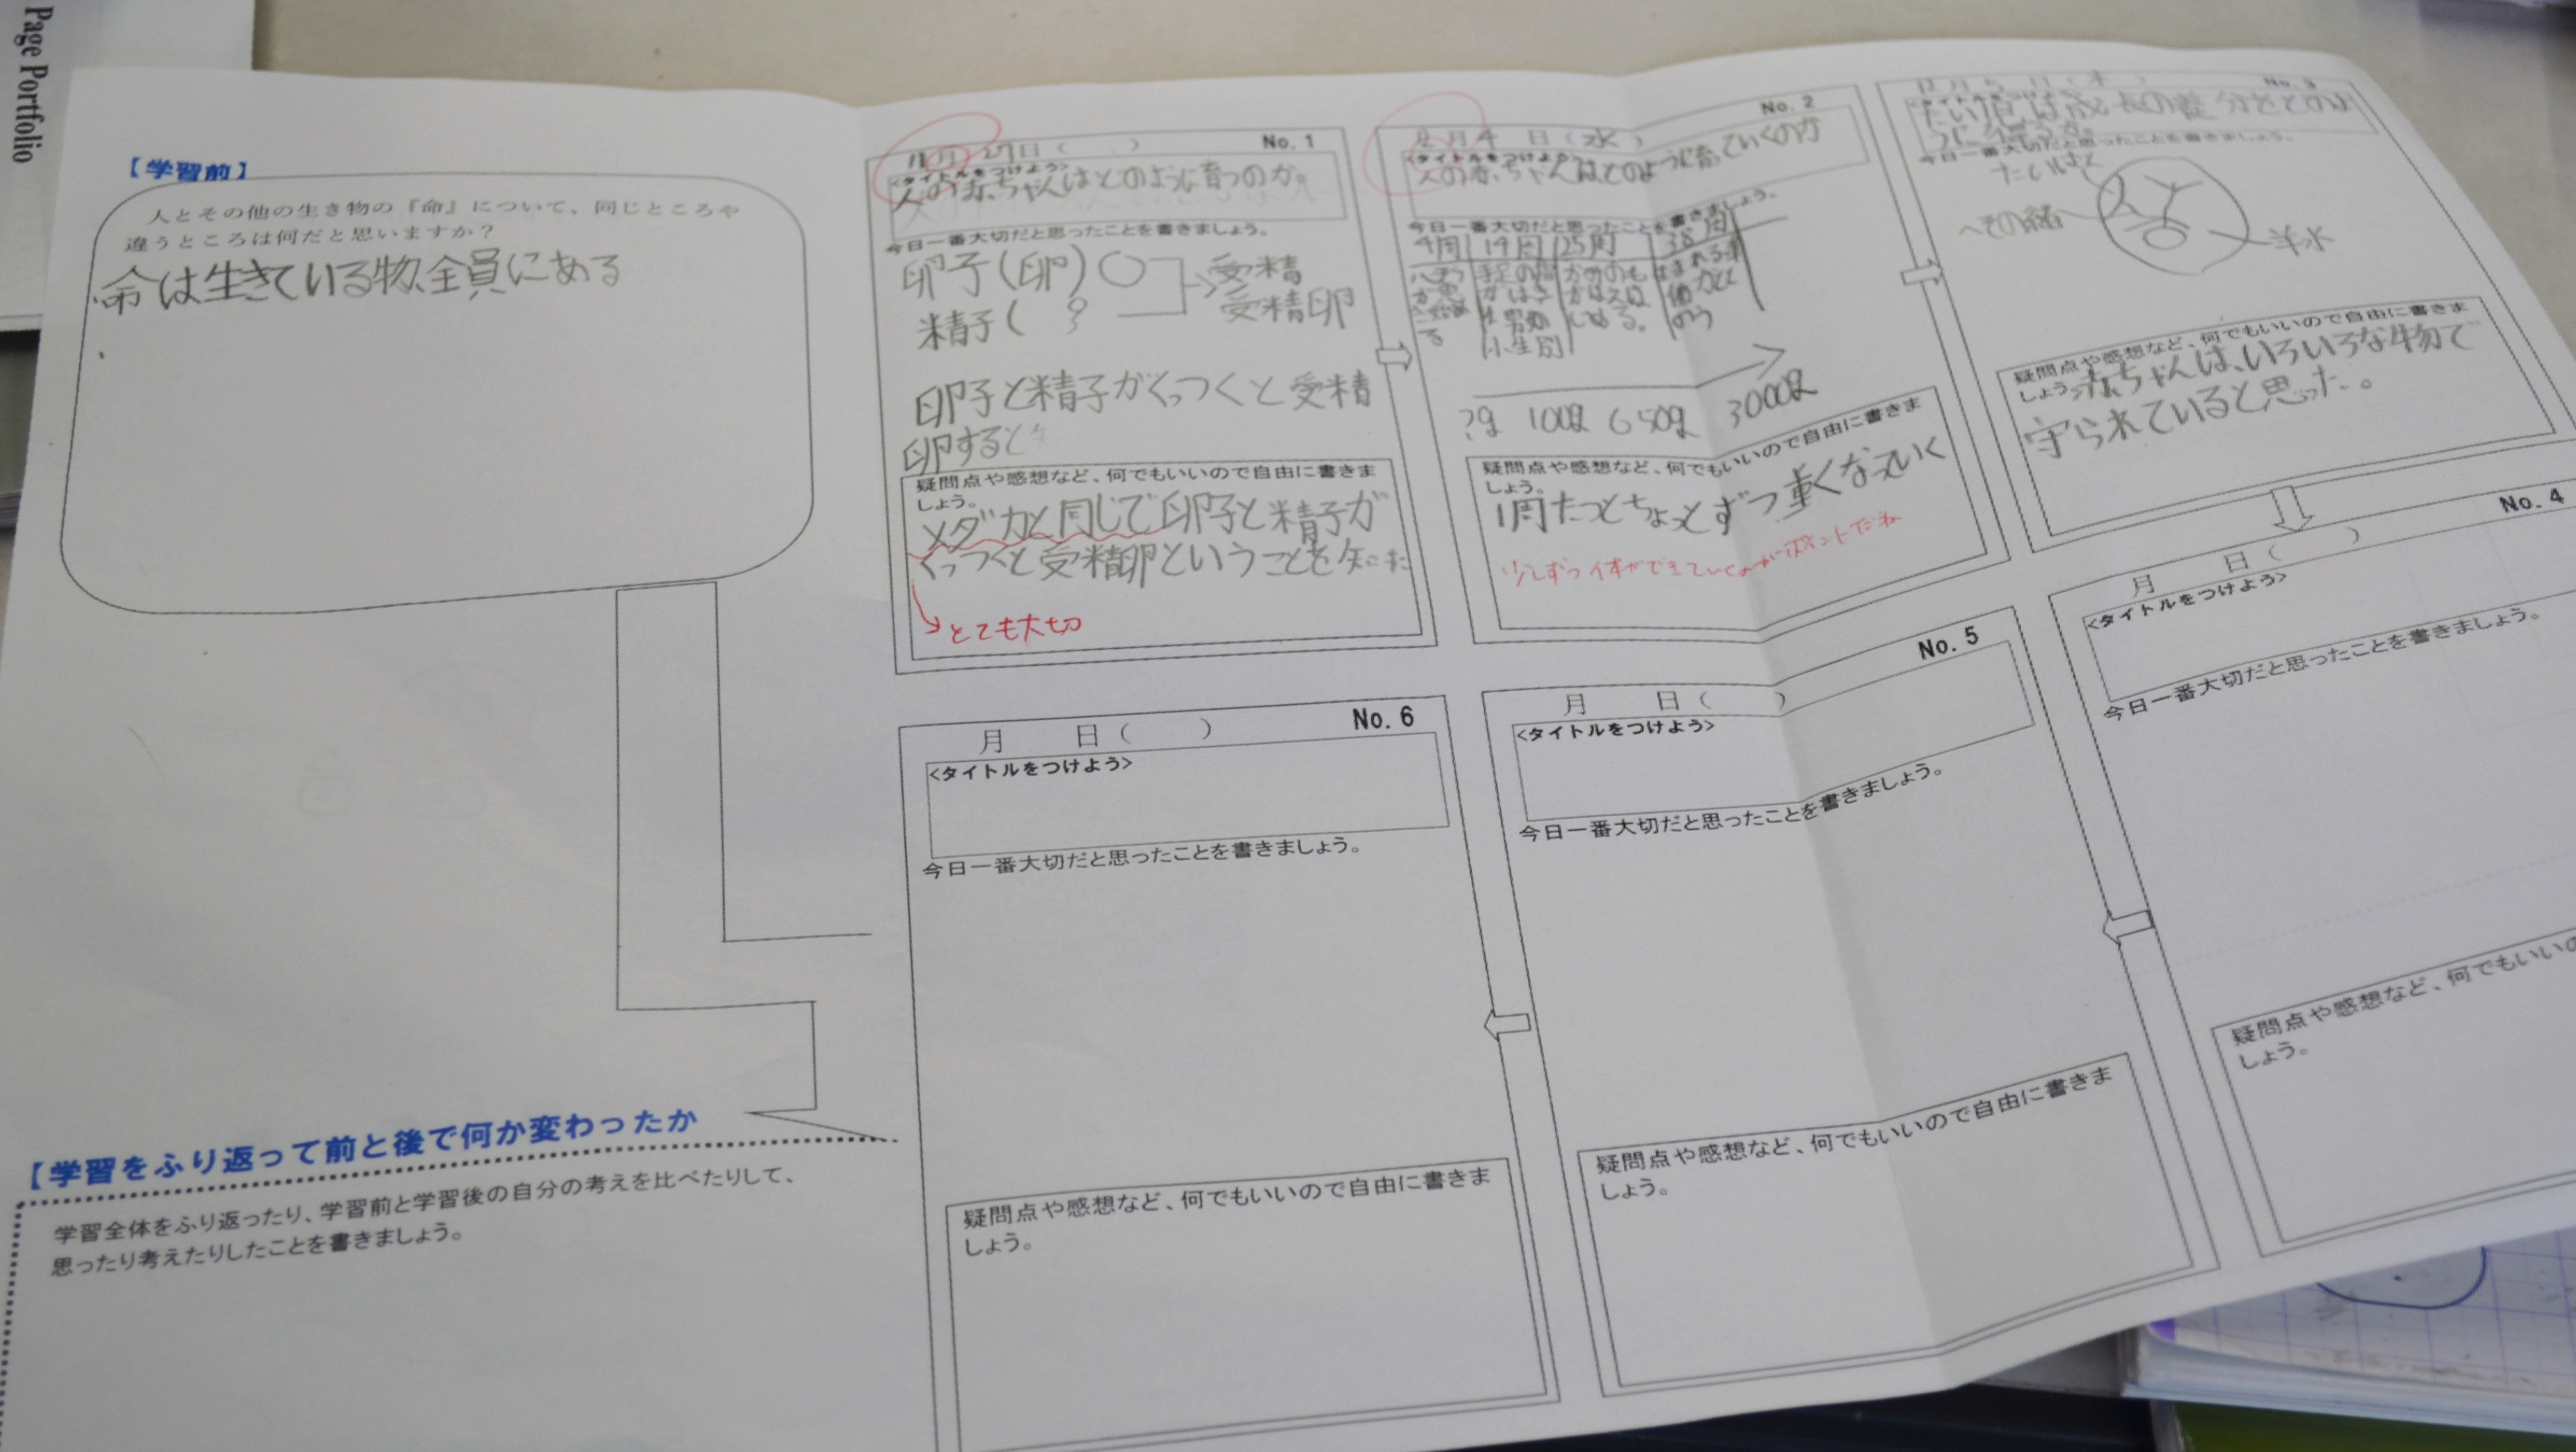 Page Portfolio
【学習前】
人とその他の生き物の『命』について、同じところや
違うところは何だと思いますか?
命は生きている物全員にある
11月27日( ) No. 1
<タイトルをつけよう>
人の赤ちゃんはどのように育つのか。
今日一番大切だと思ったことを書きましょう。
卵子(卵) 受精
精子( 受精卵
卵子と精子がくっつくと受精
卵すると
疑問点や感想など、何でもいいので自由に書きま
しょう。
メダカと同じで卵子と精子が
くっつくと受精卵ということを知った
とても大切
12月4日(水) No. 2
<タイトルをつけよう>
人の赤ちゃんはどのように育っていくのか
今日一番大切だと思ったことを書きましょう。
4周 14周 25周 38周
?g 100g 650g 3000g
疑問点や感想など、何でもいいので自由に書きま
しょう。
1周たつとちょっとずつ重くなっていく
少しずつ体ができていくのがポイントだね
12月5日(木) No. 3
たい児は成長の養分をどのよ
うに
今日一番大切だと思ったことを書きましょう。
たいばん
へその緒
羊水
疑問点や感想など、何でもいいので自由に書きま
しょう。
赤ちゃんは、いろいろな物で
守られていると思った。
No. 4
月 日( )
<タイトルをつけよう>
今日一番大切だと思ったことを書きましょう。
疑問点や感想など、何でもいいの
しょう。
No. 5
月 日( )
<タイトルをつけよう>
今日一番大切だと思ったことを書きましょう。
疑問点や感想など、何でもいいので自由に書きま
しょう。
月 日( ) No. 6
<タイトルをつけよう>
今日一番大切だと思ったことを書きましょう。
疑問点や感想など、何でもいいので自由に書きま
しょう。
【学習をふり返って前と後で何か変わったか
学習全体をふり返ったり、学習前と学習後の自分の考えを比べたりして、
思ったり考えたりしたことを書きましょう。